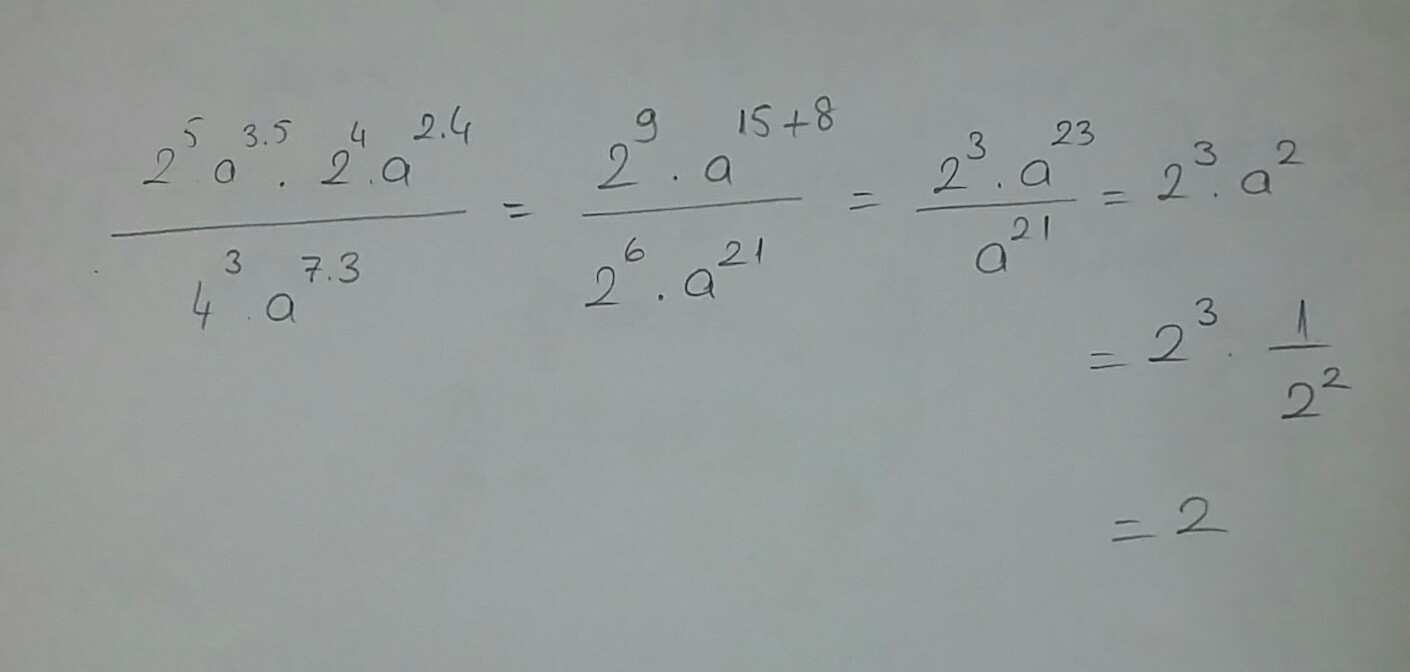 \frac{2^5 a^{3.5} . 2^4 . a^{2.4}}{4^3 . a^{7.3}} = \frac{2^9 . a^{15+8}}{2^6 . a^{21}} = \frac{2^3 . a^{23}}{a^{21}} = 2^3 . a^2
= 2^3 . \frac{1}{2^2}
= 2